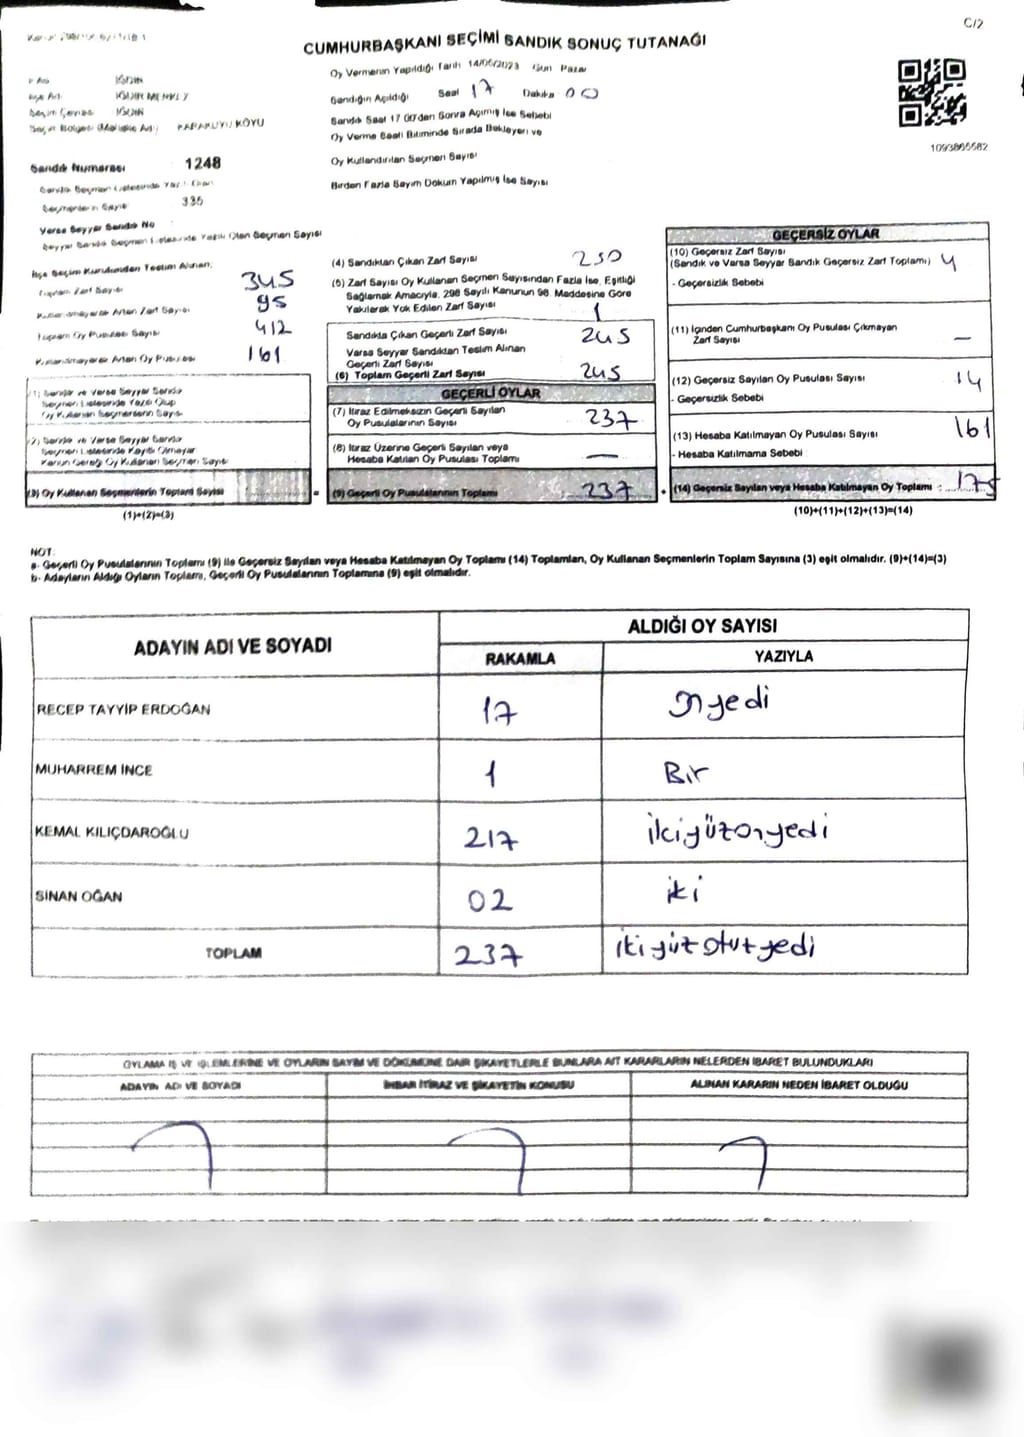 C/2
CUMHURBAŞKANI SEÇİMİ SANDIK SONUÇ TUTANAĞI
Oy Vermenin Yapıldığı Tarih 14/05/2023 Gün Pazar
Sandığın Açıldığı Saat 17 Dakika 00
Sandık Saat 17 00'den Sonra Açılmış İse Sebebi
Oy Verme Saati Bitiminde Sırada Bekleyen ve
Oy Kullandırılan Seçmen Sayısı
Birden Fazla Sayım Döküm Yapılmış İse Sayısı
1093865582
IĞDIR
IĞDIR MERKEZ
IĞDIR
Seçim Bölgesi (Mahalle Adı) KARAKUYU KÖYU
Sandık Numarası 1248
Sandık Seçmen Listesinde Yazılı Olan
Seçmenlerin Sayısı 335
Varsa Seyyar Sandık No
Seyyar Sandık Seçmen Listesinde Yazılı Olan Seçmen Sayısı
İlçe Seçim Kurulundan Teslim Alınan;
Toplam Zarf Sayısı 345
Kullanılmayarak Artan Zarf Sayısı 95
Toplam Oy Pusulası Sayısı 412
Kullanılmayarak Artan Oy Pusulası 161
(1) Sandık ve Varsa Seyyar Sandık
Seçmen Listesinde Yazılı Olup
Oy Kullanan Seçmenlerin Sayısı
(2) Sandık ve Varsa Seyyar Sandık
Seçmen Listesinde Kayıtlı Olmayan
Kanun Gereği Oy Kullanan Seçmen Sayısı
(3) Oy Kullanan Seçmenlerin Toplam Sayısı
(1)+(2)=(3)
(4) Sandıktan Çıkan Zarf Sayısı 250
(5) Zarf Sayısı Oy Kullanan Seçmen Sayısından Fazla İse, Eşitliği
Sağlamak Amacıyla, 298 Sayılı Kanunun 98. Maddesine Göre
Yakılarak Yok Edilen Zarf Sayısı 1
Sandıkta Çıkan Geçerli Zarf Sayısı 245
Varsa Seyyar Sandıktan Teslim Alınan
Geçerli Zarf Sayısı
(6) Toplam Geçerli Zarf Sayısı 245
GEÇERLİ OYLAR
(7) İtiraz Edilmeksizin Geçerli Sayılan
Oy Pusulalarının Sayısı 237
(8) İtiraz Üzerine Geçerli Sayılan veya
Hesaba Katılan Oy Pusulası Toplamı —
(9) Geçerli Oy Pusulalarının Toplamı 237
GEÇERSİZ OYLAR
(10) Geçersiz Zarf Sayısı
(Sandık ve Varsa Seyyar Sandık Geçersiz Zarf Toplamı) 4
- Geçersizlik Sebebi
(11) İçinden Cumhurbaşkanı Oy Pusulası Çıkmayan
Zarf Sayısı —
(12) Geçersiz Sayılan Oy Pusulası Sayısı 14
- Geçersizlik Sebebi
(13) Hesaba Katılmayan Oy Pusulası Sayısı 161
- Hesaba Katılmama Sebebi
(14) Geçersiz Sayılan veya Hesaba Katılmayan Oy Toplamı : 175
(10)+(11)+(12)+(13)=(14)
NOT:
a- Geçerli Oy Pusulalarının Toplamı (9) ile Geçersiz Sayılan veya Hesaba Katılmayan Oy Toplamı (14) Toplamları, Oy Kullanan Seçmenlerin Toplam Sayısına (3) eşit olmalıdır. (9)+(14)=(3)
b- Adayların Aldığı Oyların Toplamı, Geçerli Oy Pusulalarının Toplamına (9) eşit olmalıdır.
ADAYIN ADI VE SOYADI
ALDIĞI OY SAYISI
RAKAMLA YAZIYLA
RECEP TAYYİP ERDOĞAN 17 Onyedi
MUHARREM İNCE 1 Bir
KEMAL KILIÇDAROĞLU 217 ikiyüzonyedi
SİNAN OĞAN 02 iki
TOPLAM 237 ikiyüzotuzyedi
OYLAMA İŞ VE İŞLEMLERİNE VE OYLARIN SAYIM VE DÖKÜMÜNE DAİR ŞİKAYETLERLE BUNLARA AİT KARARLARIN NELERDEN İBARET BULUNDUKLARI
ADAYIN ADI VE SOYADI İHBAR İTİRAZ VE ŞİKAYETİN KONUSU ALINAN KARARIN NEDEN İBARET OLDUĞU